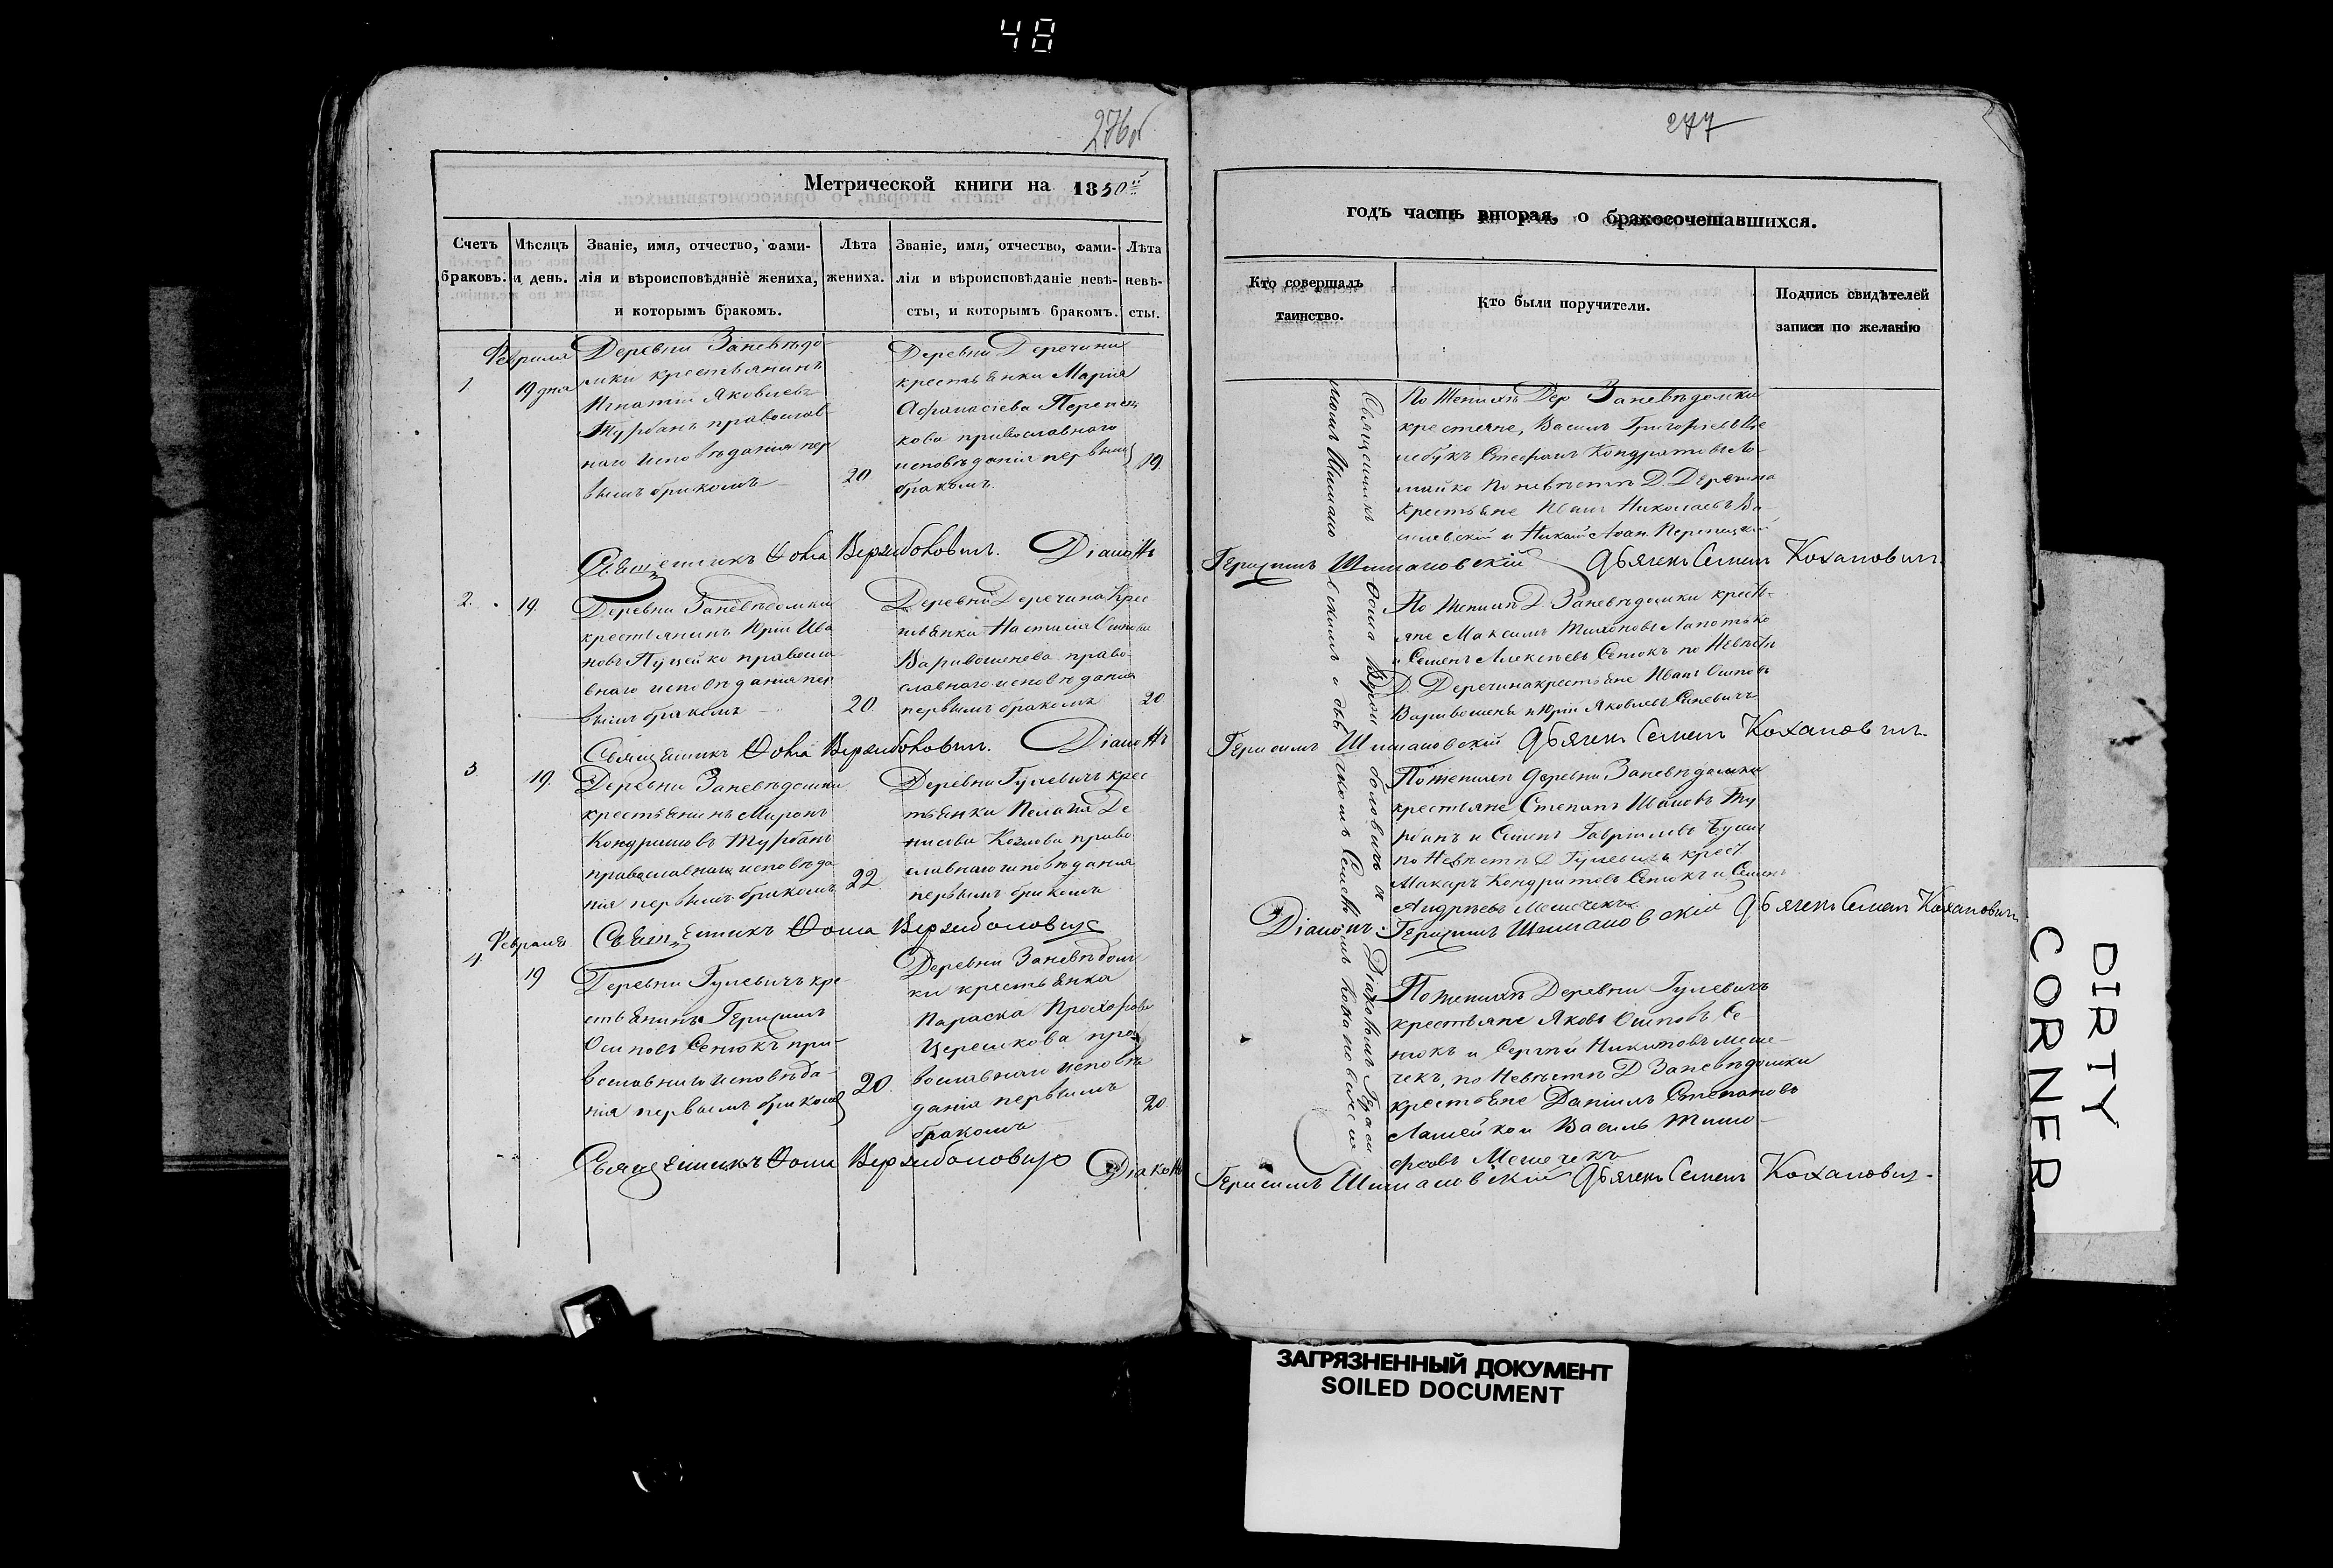 48
276об
Метрической книги на 1850й
Счетъ браковъ.
Мѣсяцъ и день.
Званіе, имя, отчество, фами-
лія и вѣроисповѣданіе жениха,
и которымъ бракомъ.
Лѣта
жениха.
Званіе, имя, отчество, фами-
лія и вѣроисповѣданіе невѣ-
сты, и которымъ бракомъ.
Лѣта
невѣ-
сты.
Февраля
1
19 дня
Деревни Заневѣдо-
мки крестьянинъ
Игнатій Яковлевъ
Турбанъ православ-
наго исповѣданія пер
вымъ бракомъ
20
Деревни Деречина
крестьянка Марія
Афанасіева
православнаго
исповѣданія первымъ
бракомъ
19
Священникъ Фома Вержболовичъ. Діаконъ
2.
19.
Деревни Заневѣдомки
крестьянинъ Юрій Ива
новъ Пуцейко правосла
внаго исповѣданія пер
вымъ бракомъ
20.
Деревни Деречина крес
тьянка Настасія
Варивошенева право-
славнаго исповѣданія
первымъ бракомъ
20
Священникъ Фома Вержболовичъ. Діаконъ
3.
19.
Деревни Заневѣдомки
крестьянинъ Миронъ
Кондратовъ Турбанъ
православнаго исповѣда
нія первымъ бракомъ
22.
Деревни Гулевичъ крес
тьянка Пелагія Де
нисова Козлова право
славнаго исповѣданія
первымъ бракомъ
Священникъ Фома Вержболовичъ
4
Февраля
19
Деревни Гулевичъ кре-
стьянинъ Герасимъ
Осиповъ Сенюкъ пра-
вославнаго исповѣда-
нія первымъ бракомъ
20
Деревни Заневѣдом
ки крестьянка
Параска Прохорова
Церешкова пра
вославнаго исповѣ
данія первымъ
бракомъ
20
Священникъ Фома Вержболовичъ Діаконъ
277
годъ часть вторая, о бракосочетавшихся.
Кто совершалъ
таинство.
Кто были поручители.
Подпись свидѣтелей
записи по желанію
Священникъ Фома Вержболовичъ съ Діакономъ Гераси
момъ Шимановскимъ и дьячкомъ Семеномъ Кохановичемъ
По Женихѣ Дер Заневѣдомки
крестяне, Василь Григорьевъ
Стефанъ Кондратовъ
по невѣстѣ Д. Деречина
крестьяне Иванъ Николаевъ
Герасимъ Шимановскій Дьячекъ Семенъ Кохановичъ.
По Женихѣ Д. Заневѣдомки крест-
яне Максимъ Тихоновъ Лапотько
и Семенъ Алексѣевъ Сенюкъ по Невѣстѣ
Д. Деречина крестьяне Иванъ Осиповъ
Варивошеня и Юрій Яковлевъ Синевичъ
Герасимъ Шимановскій Дьячекъ Семенъ Кохановичъ.
По женихѣ деревни Заневѣдомки
крестьяне Степанъ Ивановъ Ту
рбанъ и Семенъ Гавріиловъ
по Невѣстѣ Д Гулевичъ крест
Макаръ Кондратовъ Сенюкъ и Семенъ
Андреевъ Мешечекъ
Діаконъ Герасимъ Шимановскій Дьячекъ Семенъ Кохановичъ
По женихѣ Деревни Гулевичъ
крестьяне Яковъ Осиповъ Се-
нюкъ и Сергѣй Никитовъ Меше-
чекъ, по Невѣстѣ Д Заневѣдомки
крестьяне Даніилъ Степановъ
Лашейко и Василь Тимо-
феевъ Мешечекъ
Герасимъ Шимановскій Дьячекъ Семенъ Кохановичъ
DIRTY
CORNER
ЗАГРЯЗНЕННЫЙ ДОКУМЕНТ
SOILED DOCUMENT